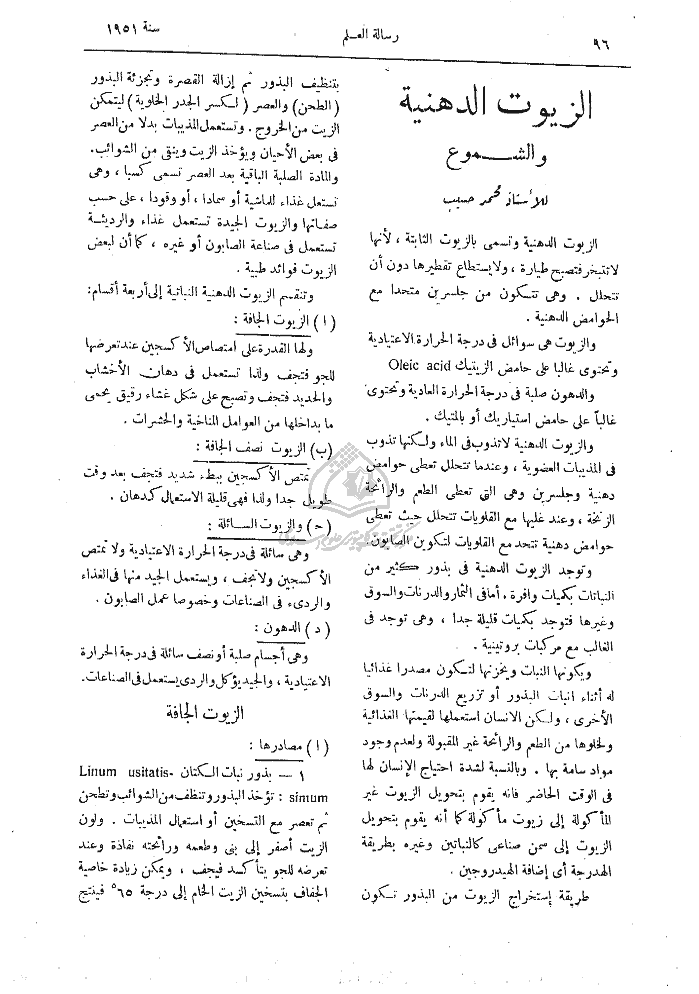 ٩٦
رسالة العلم
سنة ١٩٥١
الزيوت الدهنية
والشموع
للأستاذ محمد حسيب
الزيوت الدهنية وتسمى بالزيوت الثابتة ، لأنها
لا تتبخر فتصبح طيارة ، ولا يستطاع تقطيرها دون أن
تتحلل . وهى تتكون من جلسرين متحدا مع
الحوامض الدهنية .
والزيوت هى سوائل فى درجة الحرارة الاعتيادية
وتحتوى غالبا على حامض الزيتيك Oleic acid
والدهون صلبة فى درجة الحرارة العادية وتحتوى
غالباً على حامض استياريك أو بالمتيك .
والزيوت الدهنية لا تذوب فى الماء ولكنها تذوب
فى المذيبات العضوية ، وعندما تتحلل تعطى حوامض
دهنية وجلسرين وهى التى تعطى الطعم والرائحة
الزنخة ، وعند غليها مع القلويات تتحلل حيث تعطى
حوامض دهنية تتحد مع القلويات لتكوين الصابون .
وتوجد الزيوت الدهنية فى بذور كثير من
النباتات بكميات وافرة . أما فى الثمار والدرنات والسوق
وغيرها فتوجد بكميات قليلة جدا ، وهى توجد فى
الغالب مع مركبات بروتينية .
ويكونها النبات ويخزنها لتكون مصدرا غذائيا
له أثناء انبات البذور أو تزريع الدرنات والسوق
الأخرى ، ولكن الانسان استعملها لقيمتها الغذائية
ولخلوها من الطعم والرائحة غير المقبولة ولعدم وجود
مواد سامة بها . وبالنسبة لشدة احتياج الإنسان لها
فى الوقت الحاضر فانه يقوم بتحويل الزيوت غير
المأكولة إلى زيوت مأكولة كما أنه يقوم بتحويل
الزيوت إلى سمن صناعى كالنباتين وغيره بطريقة
الهدرجة أى إضافة الهيدروجين .
طريقة إستخراج الزيوت من البذور تكون
بتنظيف البذور ثم إزالة القصرة وتجزئة البذور
(الطحن) والعصر (لكسر الجدر الخلوية) ليتمكن
الزيت من الخروج . وتستعمل المذيبات بدلا من العصر
فى بعض الأحيان ويؤخذ الزيت وينقى من الشوائب.
والمادة الصلبة الباقية بعد العصر تسمى كسبا ، وهى
تستعل غذاء للماشية أو سمادا ، أو وقودا ، على حسب
صفاتها والزيوت الجيدة تستعمل غذاء والرديئة
تستعمل فى صناعة الصابون أو غيره ، كما أن لبعض
الزيوت فوائد طبية .
وتنقسم الزيوت الدهنية النباتية إلى أربعة أقسام:
(ا) الزيوت الجافة :
ولها القدرة على امتصاص الأكسجين عند تعرضها
للجو فتجف ولذا تستعمل فى دهان الأخشاب
والحديد فتجف وتصبح على شكل غشاء رقيق يحمى
ما بداخلها من العوامل المناخية والحشرات .
(ب) الزيوت نصف الجافة :
تمتص الأكسجين ببطء شديد فتجف بعد وقت
طويل جدا ولذا فهى قليلة الاستعمال كدهان .
(ح) والزيوت السائلة :
وهى سائلة فى درجة الحرارة الاعتيادية ولا تمتص
الأكسجين ولا تجف ، ويستعمل الجيد منها فى الغذاء
والردىء فى الصناعات وخصوصا عمل الصابون .
(د) الدهون :
وهى أجسام صلبة أو نصف سائلة فى درجة الحرارة
الاعتيادية ، والجيد يؤكل والردى يستعمل فى الصناعات.
الزيوت الجافة
(ا) مصادرها :
١ — بذور نبات الكتان Linum usitatis-
simum : تؤخذ البذور وتنظف من الشوائب وتطحن
ثم تعصر مع التسخين أو استعمال المذيبات . ولون
الزيت أصفر إلى بنى وطعمه ورائحته نفاذة وعند
تعرضه للجو يتأكسد فيجف ، ويمكن زيادة خاصية
الجفاف بتسخين الزيت الخام إلى درجة ٥٦٥ فينتج